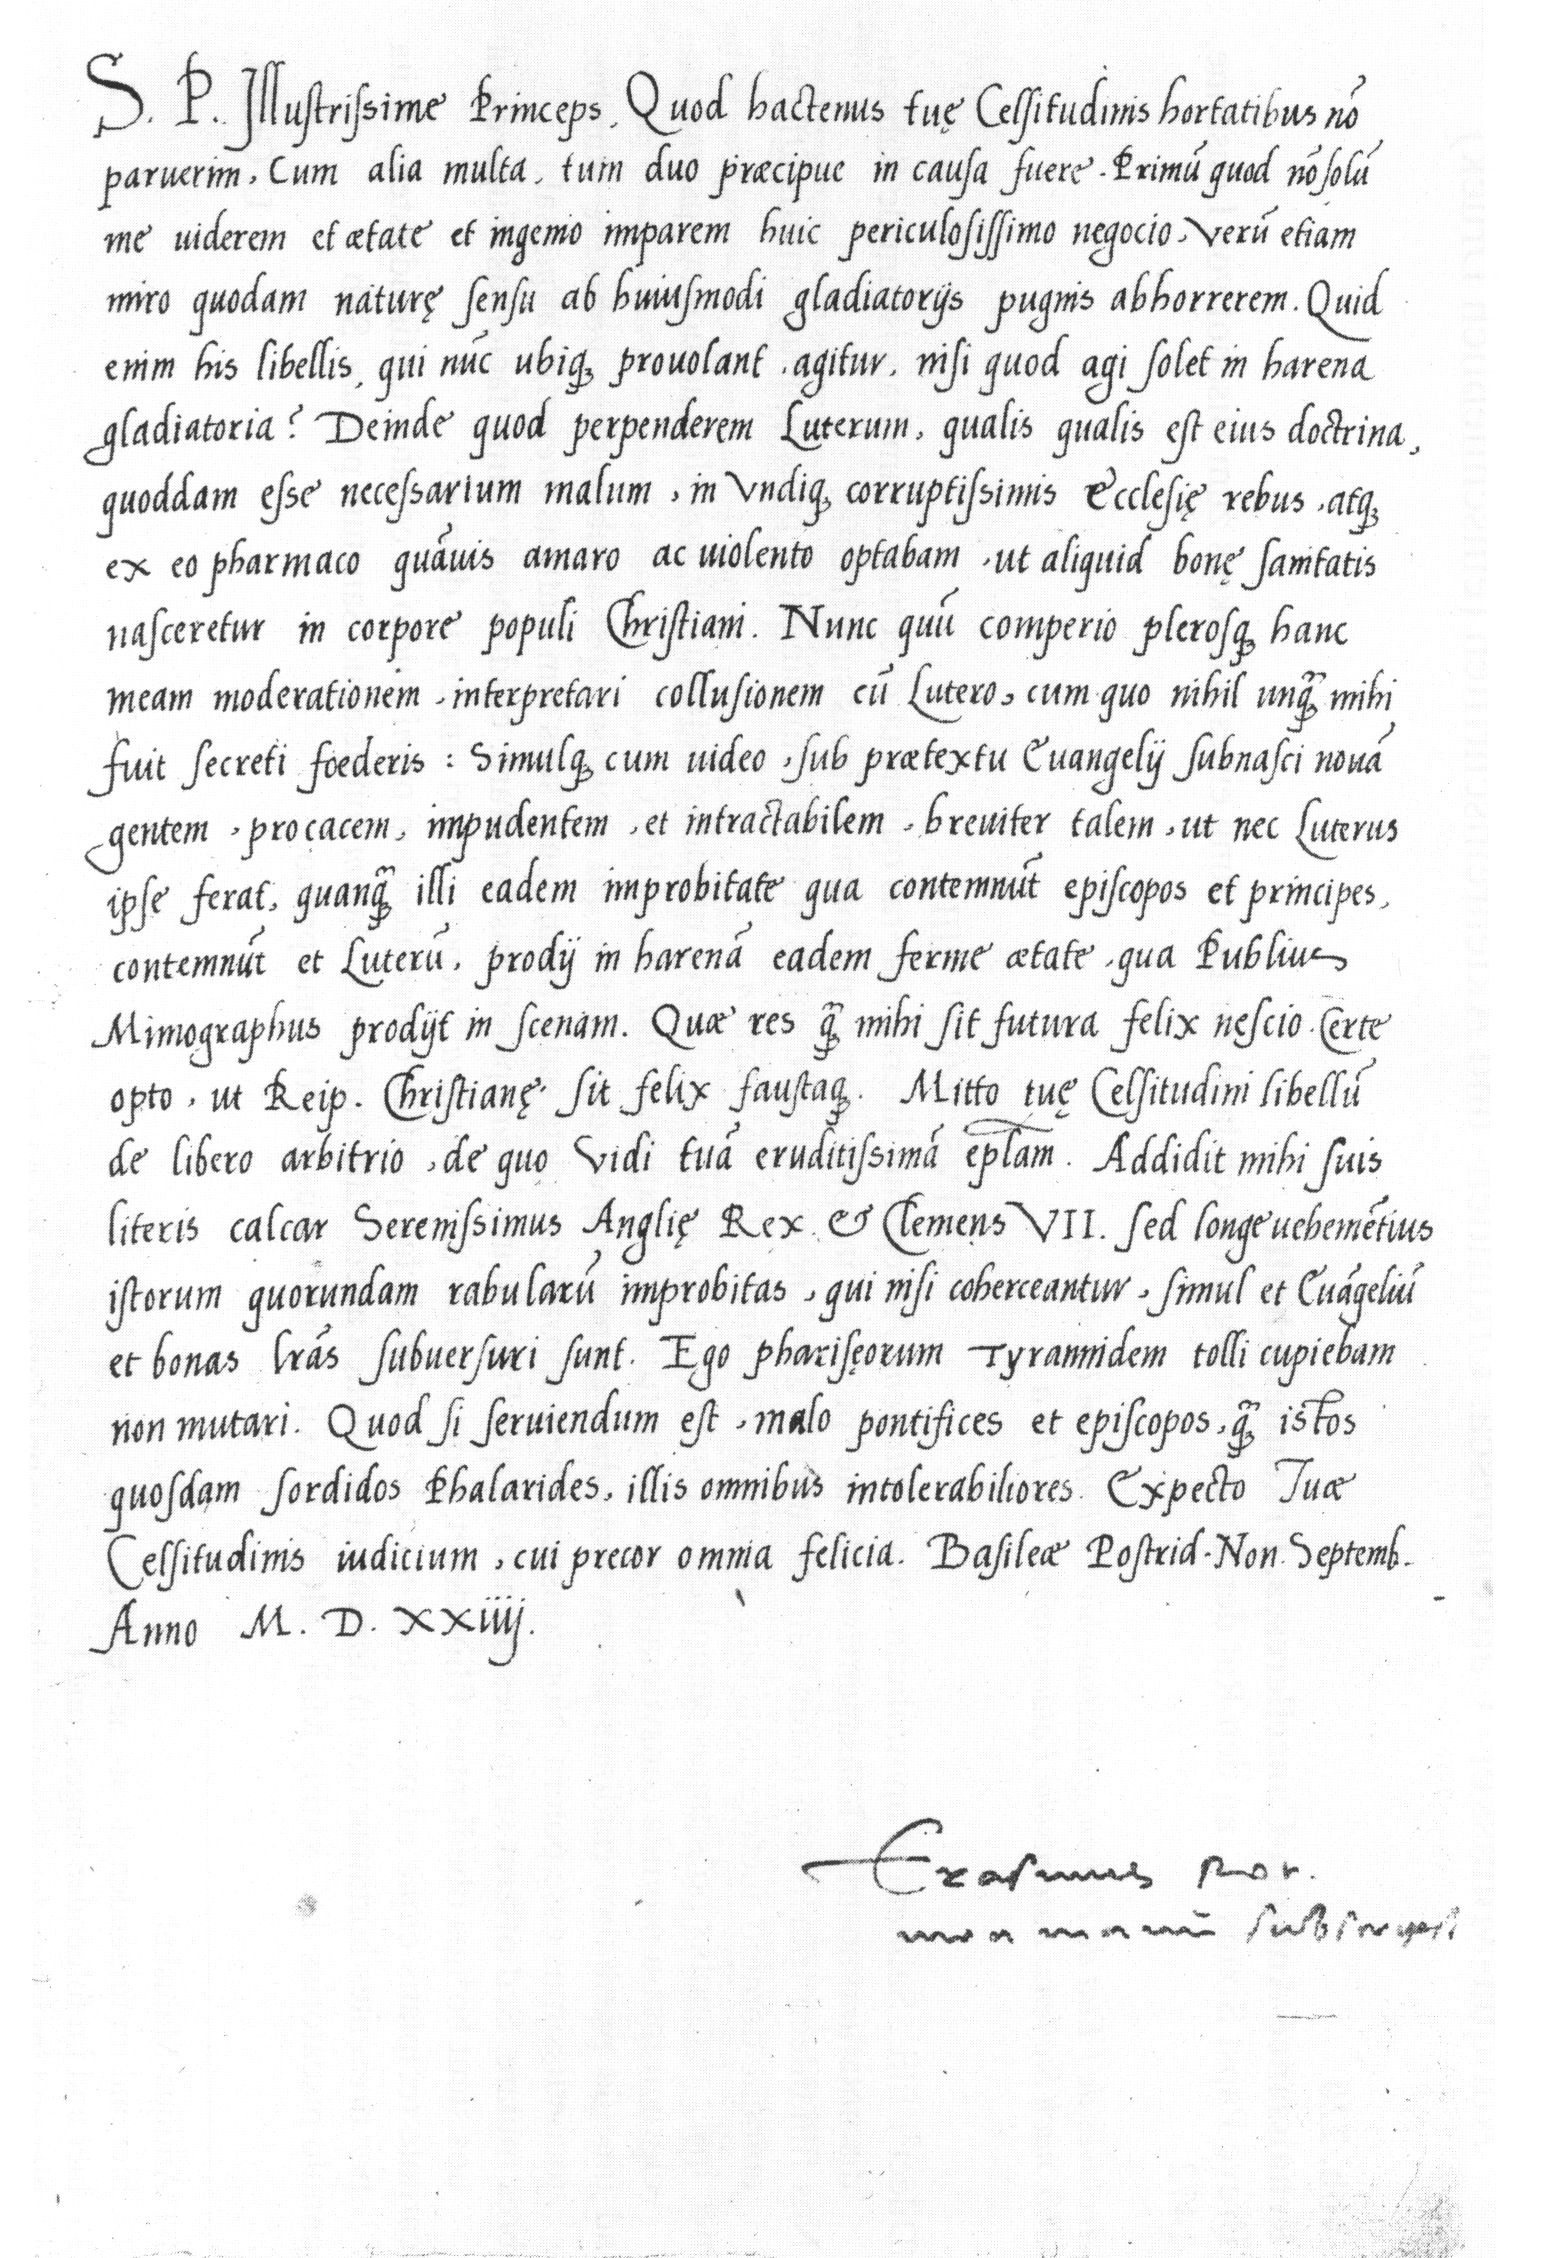 S. P. Illustrissime Princeps, Quod hactenus tuę Celsitudinis hortatibus nō
paruerim, Cum alia multa, tum duo præcipue in causa fuere. Primū quod nō solū
me uiderem et ætate et ingenio imparem huic periculosissimo negocio, Verū etiam
miro quodam naturę sensu ab huiusmodi gladiatorijs pugnis abhorrerem. Quid
enim his libellis, qui nūc ubiqꝫ prouolant, agitur, nisi quod agi solet in harena
gladiatoria? Deinde quod perpenderem Luterum, qualis qualis est eius doctrina,
quoddam esse necessarium malum, in Vndiqꝫ corruptissimis Ecclesię rebus, atqꝫ
ex eo pharmaco quāuis amaro ac uiolento optabam, ut aliquid bonę sanitatis
nasceretur in corpore populi Christiani. Nunc quū comperio plerosqꝫ hanc
meam moderationem, interpretari collusionem cū Lutero, cum quo nihil unqꝫ̄ mihi
fuit secreti foederis: Simulqꝫ cum uideo, sub prætextu Euangelij subnasci nouā
gentem, procacem, impudentem, et intractabilem, breuiter talem, ut nec Luterus
ipse ferat, quanqꝫ̄ illi eadem improbitate qua contemnūt episcopos et principes,
contemnūt et Luterū, prodij in harenā eadem ferme ætate, qua Publius
Mimographus prodijt in scenam. Quæ res qꝫ̄ mihi sit futura felix nescio. Certe
opto, ut Reip. Christianę sit felix faustaqꝫ. Mitto tuę Celsitudini libellū
de libero arbitrio, de quo Vidi tuā eruditissimā ep̄lam. Addidit mihi suis
literis calcar Serenissimus Anglię Rex & Clemens VII. sed longe uehemētius
istorum quorundam rabularū improbitas, qui nisi coherceantur, simul et Euāgeliū
et bonas lrās subuersuri sunt. Ego pharisęorum Tyrannidem tolli cupiebam
non mutari. Quod si seruiendum est, malo pontifices et episcopos, qꝫ̄ istos
quosdam sordidos Phalarides, illis omnibus intolerabiliores. Expecto Tuæ
Celsitudinis iudicium, cui precor omnia felicia. Basileæ Postrid. Non. Septemb.
Anno M. D. XXiiij.
Erasmus Rot.
mea manu subscripsi